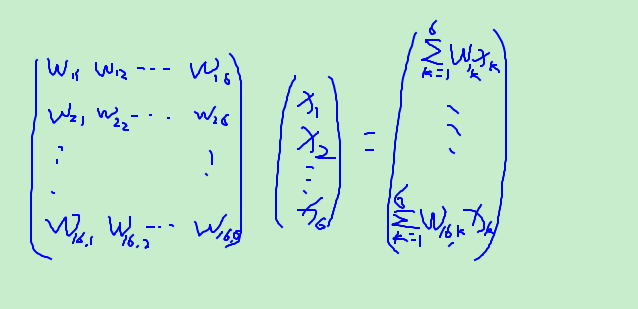 W₁₁ W₁₂ ⋯ W₁₆
W₂₁ W₂₂ ⋯ W₂₆
⋮ ⋮
W₁₆,₁ W₁₆,₂ ⋯ W₁₆,₆
x₁
x₂
⋮
x₆
=
∑ₖ₌₁⁶ W₁ₖxₖ
⋮
∑ₖ₌₁⁶ W₁₆,ₖxₖ